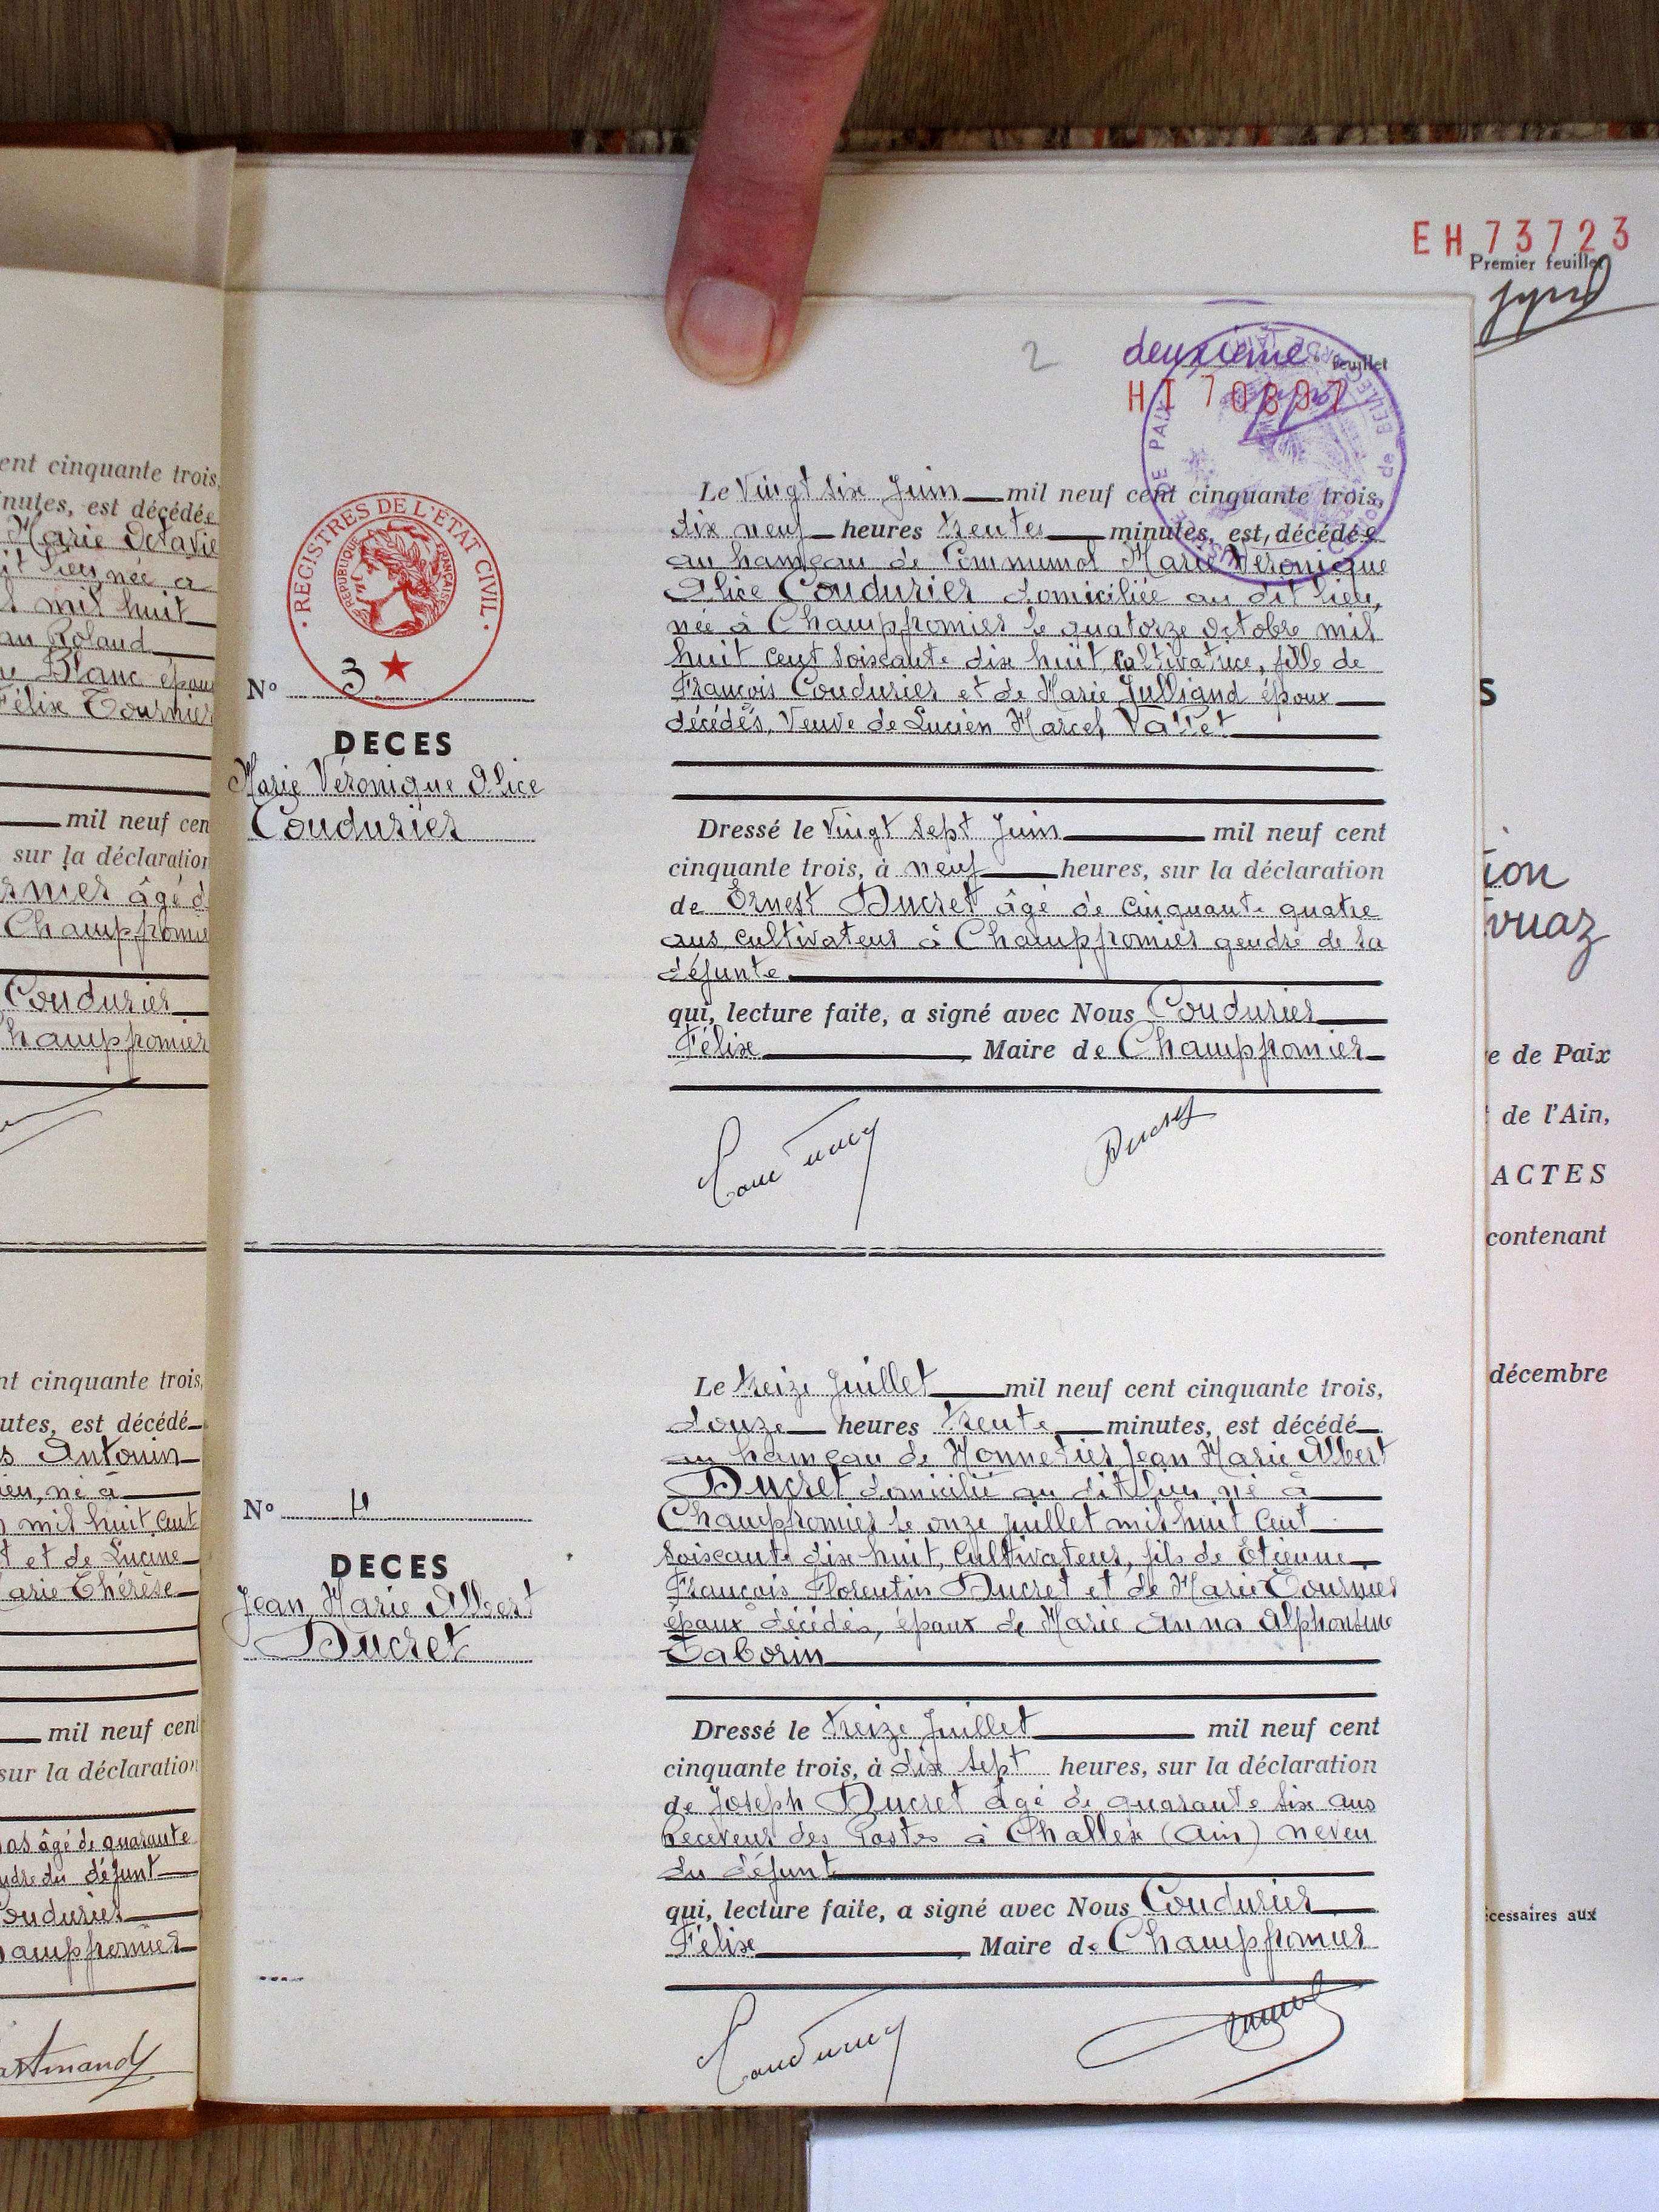 EH 73723
Premier feuillet
2
deuxième feuillet
HI 70897
REGISTRES DE L'ÉTAT CIVIL
REPUBLIQUE FRANÇAISE
N° 3
DECES
Marie Véronique Alice
Coudurier
Le Vingt six Juin mil neuf cent cinquante trois,
dix neuf heures trentes minutes, est décédée
au hameau de Communal Marie Véronique
Alice Coudurier domiciliée au dit lieu,
née à Champfromier le quatorze octobre mil
huit cent soixante dix huit cultivatrice, fille de
François Coudurier et de Marie Julliand époux
décédés, Veuve de Lucien Marcel Vallet
Dressé le Vingt sept Juin mil neuf cent
cinquante trois, à neuf heures, sur la déclaration
de Ernest Ducret âgé de cinquante quatre
ans, cultivateur à Champfromier gendre de la
défunte
qui, lecture faite, a signé avec Nous Coudurier
Félix, Maire de Champfromier
Ducret
N° 4
DECES
Jean Marie Albert
Ducret
Le treize Juillet mil neuf cent cinquante trois,
douze heures trente minutes, est décédé
au hameau de Monnetier Jean Marie Albert
Ducret domicilié au dit lieu né à
Champfromier le onze juillet mil huit cent
soixante dix huit, Cultivateur, fils de Etienne
François Florentin Ducret et de Marie Tournier
époux décédés, époux de Marie Anna Alphonsine
Taborin
Dressé le treize Juillet mil neuf cent
cinquante trois, à dix sept heures, sur la déclaration
de Joseph Ducret âgé de quarante six ans
Receveur des Postes à Challex (Ain) neveu
du défunt
qui, lecture faite, a signé avec Nous Coudurier
Félix, Maire de Champfromier
ent cinquante trois,
nutes, est décédée
Marie Octavie
it lieu, née à
mil huit
an Roland
Blanc époux
Félix Tournier
mil neuf cen
sur la déclaration
rnier âgé d
Champfromie
Coudurier
hampfromier
nt cinquante trois,
utes, est décédé
s Antonin
ieu, né à
mil huit cent
t et de Lucine
arie Thérèse
mil neuf cent
sur la déclaration
as âgé de quarante
ndre du défunt
oudurier
ampfromier
S
ion
vuaz
e de Paix
de l'Ain,
ACTES
contenant
décembre
cessaires aux